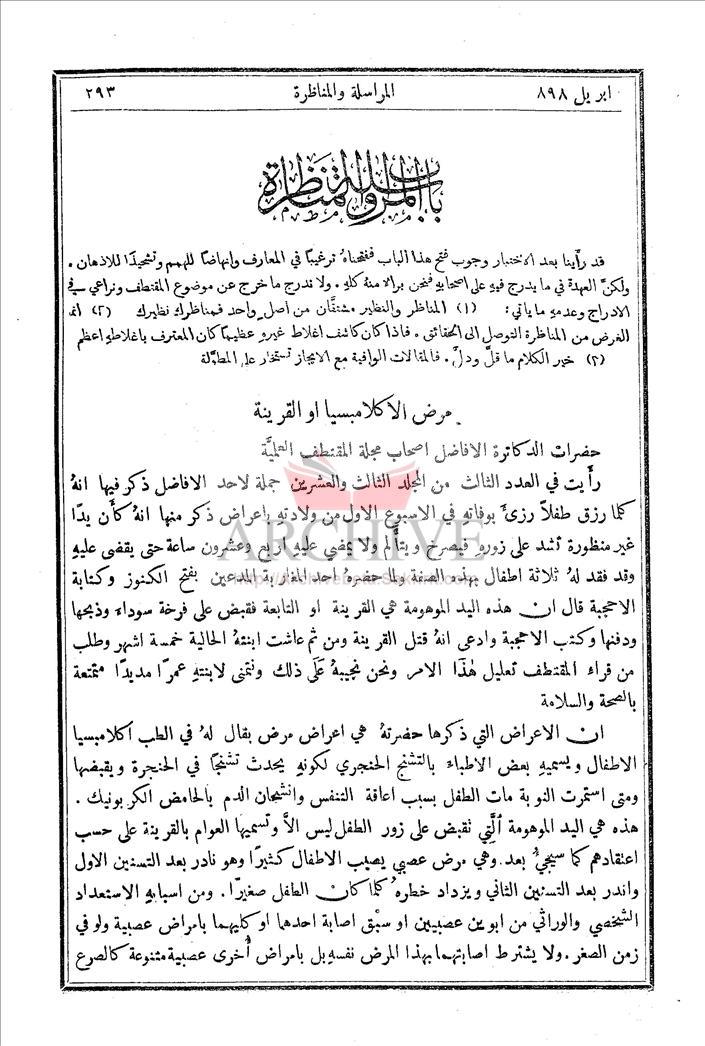 ابريل ٨٩٨ المراسلة والمناظرة ٢٩٣
باب المراسلة والمناظرة
قد رأينا بعد الاختبار وجوب فتح هذا الباب ففتحناهُ ترغيبًا في المعارف وانهاضًا للهمم وتشحيذًا للاذهان .
ولكنَّ العهدة في ما يدرج فيهِ على اصحابهِ فنحن برالا منهُ كلهِ . ولا ندرج ما خرج عن موضوع المقتطف ونراعي في
الادراج وعدمهِ ما ياتي : (١) المناظر والنظير مشتقَّان من اصل واحد فمناظرك نظيرك (٢) انما
الغرض من المناظرة التوصل الى الحقائق . فاذا كان كاشف اغلاط غيرهِ عظيمًا كان المعترف باغلاطهِ اعظم
(٣) خير الكلام ما قلَّ ودلَّ . فالمقالات الوافية مع الايجاز تستخار على المطوَّلة
مرض الاكلامبسيا او القرينة
حضرات الدكاترة الافاضل اصحاب مجلة المقتطف العلميَّة
رأيت في العدد الثالث من المجلد الثالث والعشرين جملة لاحد الافاضل ذكر فيها انهُ
كلما رزق طفلاً رزئ بوفاته في الاسبوع الاول من ولادته باعراض ذكر منها انهُ كأن يدًا
غير منظورة تشد على زوره فيصرخ ويتألم ولا يمضي عليه اربع وعشرون ساعة حتى يقضى عليه
وقد فقد لهُ ثلاثة اطفال بهذه الصفة ولما حضرهُ احد المغاربة المدعين بفتح الكنوز وكتابة
الاحجبة قال ان هذه اليد الموهومة هي القرينة او التابعة فقبض على فرخة سوداء وذبحها
ودفنها وكتب الاحجبة وادعى انهُ قتل القرينة ومن ثم عاشت ابنتهُ الحالية خمسة اشهر وطلب
من قراء المقتطف تعليل هٰذا الامر ونحن نجيبهُ عَلَى ذلك ونتمنى لابنتهِ عمرًا مديدًا متمتعة
بالصحة والسلامة
ان الاعراض التي ذكرها حضرتهُ هي اعراض مرض يقال لهُ في الطب اكلامبسيا
الاطفال ويسميهِ بعض الاطباء بالتشنج الحنجري لكونهِ يحدث تشنجًا في الحنجرة ويقبضها
ومتى استمرت النوبة مات الطفل بسبب اعاقة التنفس وانشحان الدم بالحامض الكربونيك .
هذه هي اليد الموهومة أَلَّتِي تقبض على زور الطفل ليس الاَّ وتسميها العوام بالقرينة على حسب
اعتقادهم كما سيجيُّ بعد. وهي مرض عصبي يصيب الاطفال كثيرًا وهو نادر بعد التسنين الاول
واندر بعد التسنين الثاني ويزداد خطرهُ كلما كان الطفل صغيرًا . ومن اسبابهِ الاستعداد
الشخصي والوراثي من ابوين عصبيين او سبْق اصابة احدها او كليهما بامراض عصبية ولو في
زمن الصغر . ولا يشترط اصابتهما بهذا المرض نفسهِ بل بامراض أُخرى عصبية متنوعة كالصرع
ARCHIVE